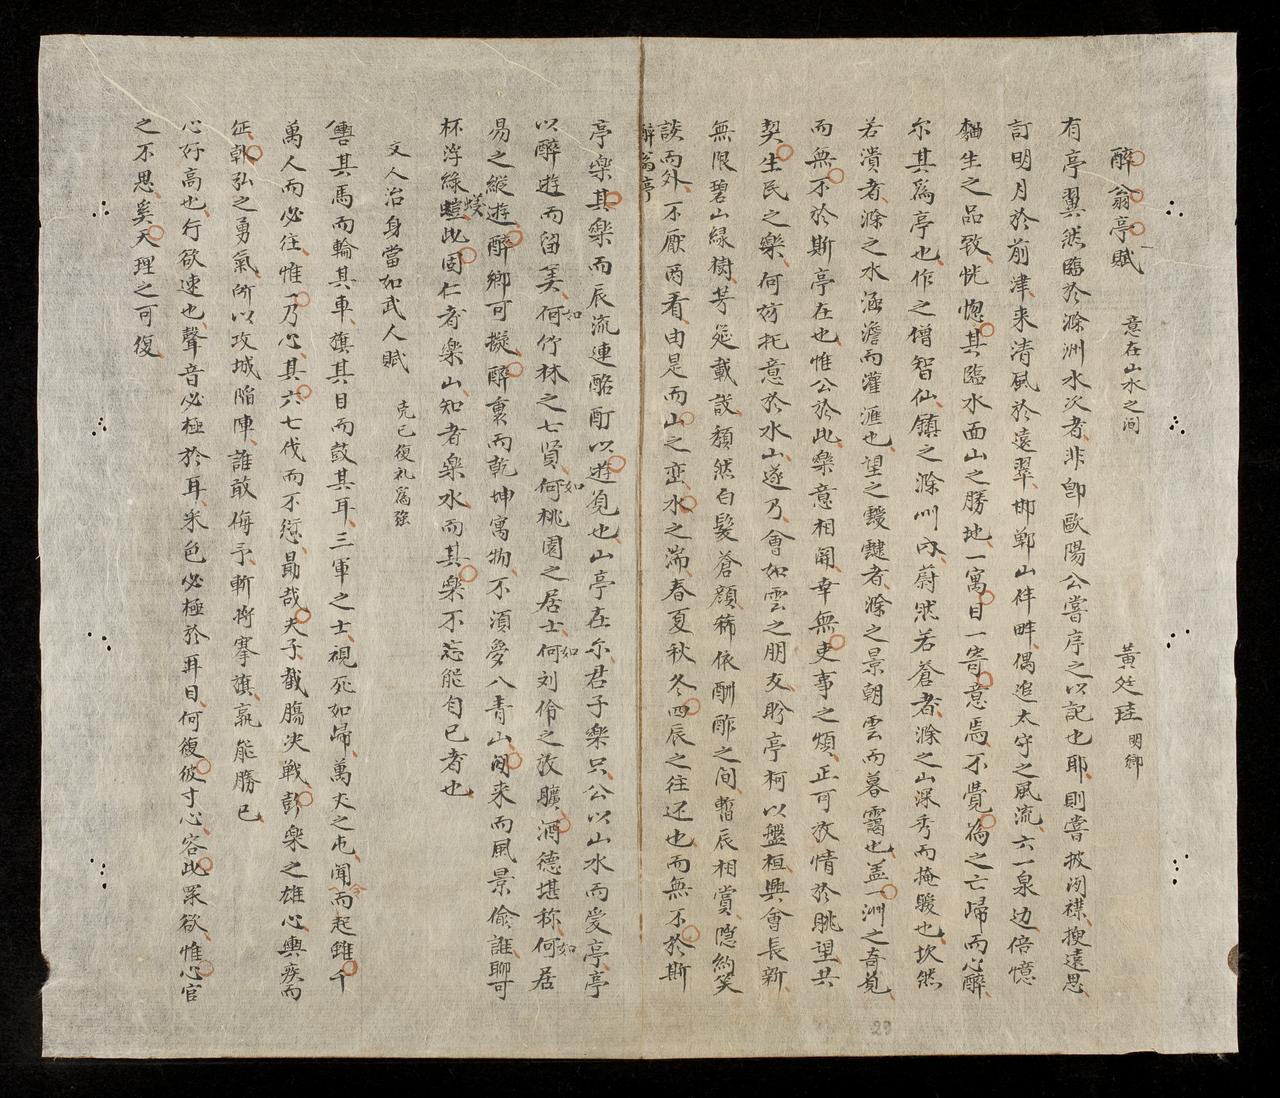 醉翁亭賦 意在山水之间 黃廷珪 関鄉
有亭翼然臨於滁洲水次者非卽歐陽公嘗序之以記也耶則嘗披洌襟搜遠思
訂明月於前津来清風於遠翠邯鄲山伴畔偶追太守之風流六一泉边倍憶
麯生之品致恍惚其臨水面山之勝地一寓目一寄意焉不覺為之亡歸而心醉
尔其爲亭也作之僧智仙鎮之滁州內蔚然若蒼者滁之山深秀而掩靉也坎然
若潰者滁之水涵澹而灌滙也望之靉靆者滁之景朝雲而暮靄也盖一洲之奇覓
而無不於斯亭在也惟公於此樂意相關幸無吏事之煩正可放情於眺望共
契生民之樂何妨托意於水山遂乃會如雲之朋友盻亭柯以盤桓興會長新
無限碧山緑樹芳筵載設頹然白髮蒼顏稀依酬酢之间暫辰相賞隐約笑
談而外不厭两看由是而山之峦水之湍春夏秋冬四辰之往还也而無不於斯
醉翁亭
亭樂其樂而辰流連酩酊以遊覓也山亭在尔君子樂只公以山水而爱亭亭
以醉遊而留美何如竹林之七賢何如桃園之居士何如刘伶之放曠酒德堪称何如居
易之縱遊醉鄉可擬醉裏而乾坤寓物不須夢八青山间来而風景偸誰聊可
杯浮緑螘蟻此固仁者樂山知者樂水而其樂不忘能自已者也
文人治身當如武人賦 克已復礼爲強
轡其馬而輪其車旗其目而鼓其耳三軍之士視死如歸萬夫之屯聞而起雖千
萬人而必往惟一乃心其六七伐而不愆勗哉夫子截膓决戰彭樂之雄心輿疾而
征韩弘之勇氣所以攻城陷陣誰敢侮予斬將搴旗孰能勝已
心好高也行欲速也聲音必極於耳采色必極於再目何復彼寸心容此眾欲惟心官
之不思奚天理之可復
29